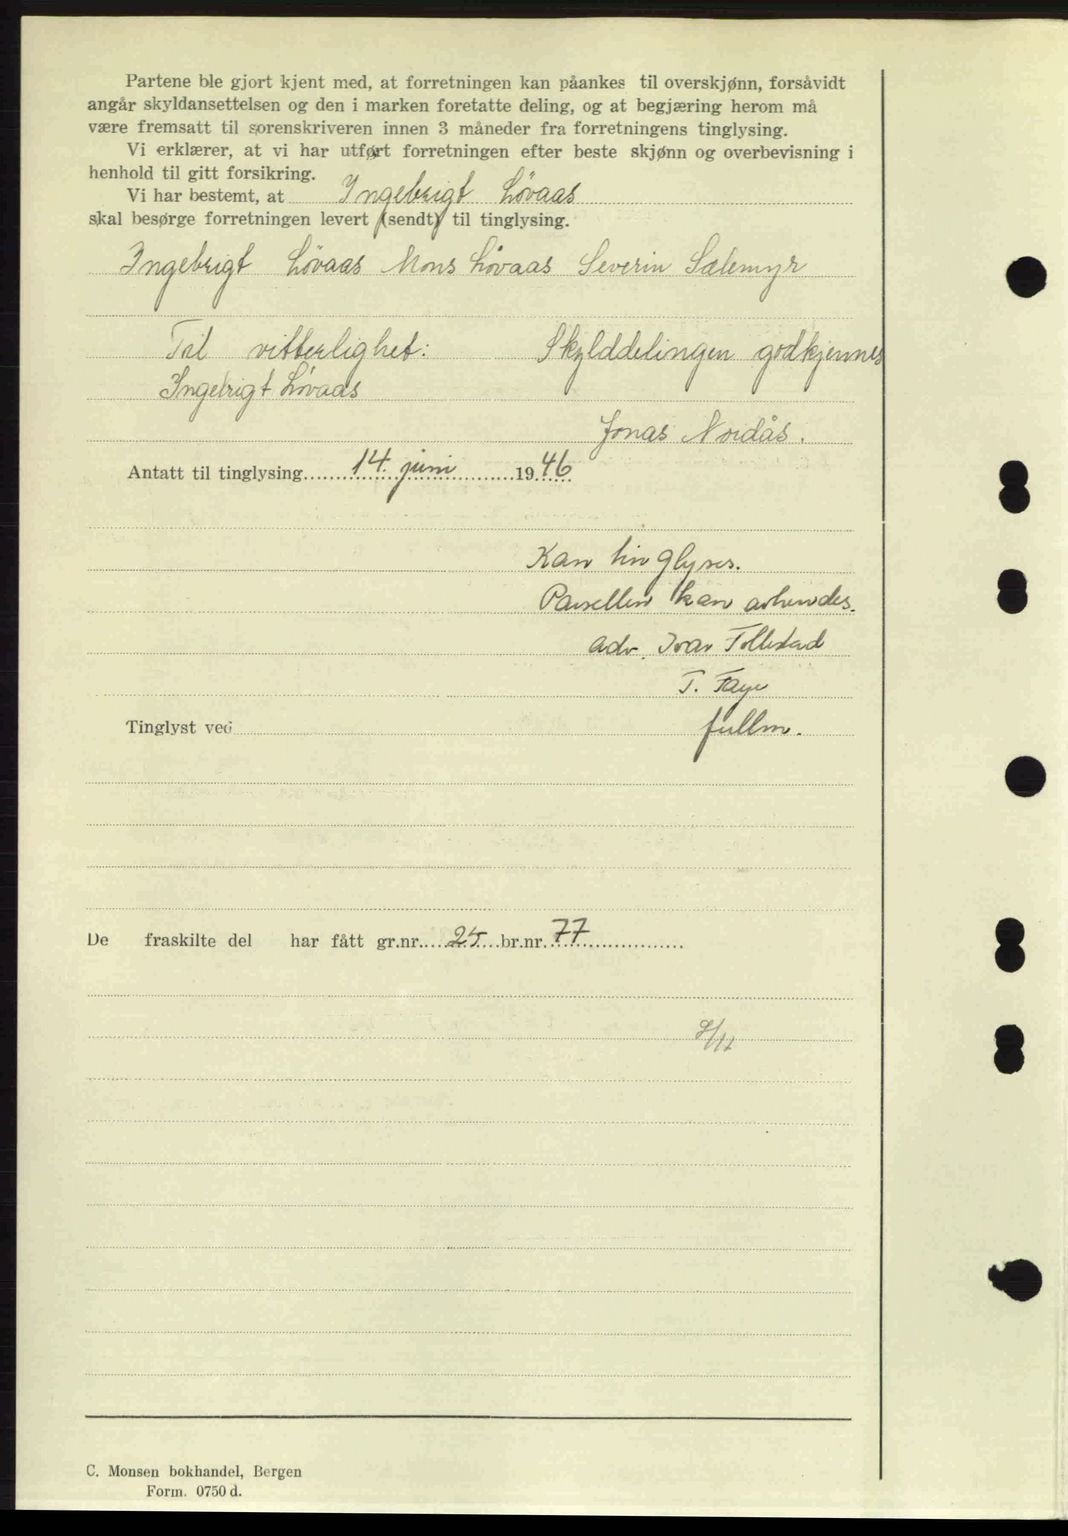 Partene ble gjort kjent med, at forretningen kan påankes til overskjønn, forsåvidt
angår skyldansettelsen og den i marken foretatte deling, og at begjæring herom må
være fremsatt til sorenskriveren innen 3 måneder fra forretningens tinglysing.
Vi erklærer, at vi har utført forretningen efter beste skjønn og overbevisning i
henhold til gitt forsikring.
Vi har bestemt, at Ingebrigt Løvaas
skal besørge forretningen levert (sendt) til tinglysing.
Ingebrigt Løvaas Mons Løvaas Severin Sælemyr
Til vitterlighet: Skylddelingen godkjennes
Ingebrigt Løvaas
Jonas Nordås.
Antatt til tinglysing 14. juni 1946
Kan tinglyses.
Parsellen kan avhendes.
adv. Ivar Tollestad
T. Faye
fullm.
Tinglyst ved
De fraskilte del har fått gr.nr. 25 br.nr. 77
8/11
C. Monsen bokhandel, Bergen
Form. 0750 d.